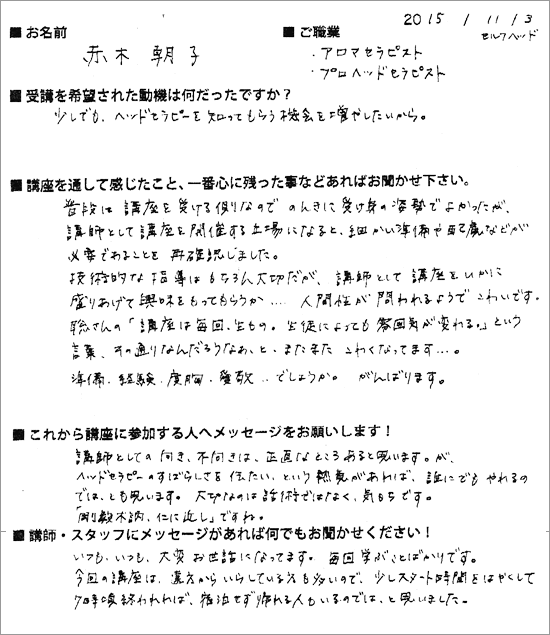 2015 / 11 / 3
■ お名前
■ ご職業
セルフヘッド
赤木 朝子
・アロマセラピスト
・プロヘッドセラピスト
■ 受講を希望された動機は何だったですか？
少しでも、ヘッドセラピーを知ってもらう機会を増やしたいから。
■ 講座を通して感じたこと、一番心に残った事などあればお聞かせ下さい。
普段は講座を受ける側なので のんきに受け身の姿勢でよかったが、
講師として講座を開催する立場になると、細かい準備や配慮などが
必要であることを 再確認しました。
技術的な指導はもちろん大切だが、講師として講座をいかに
盛りあげて興味をもってもらうか…. 人間性が問われるようでこわいです。
聡さんの「講座は毎回、生もの。生徒によっても雰囲気が変わる。」という
言葉、その通りなんだろうなぁ、と、またまた こわくなってます…。
準備・経験・度胸・度数‥でしょうか。 がんばります。
■ これから講座に参加する人へメッセージをお願いします！
講師としての向き、不向きは、正直なところあると思います。が、
ヘッドセラピーのすばらしさを伝たい、という熱氣があれば、誰にでもやれるの
では、とも思います。大切なのは話術ではなく、気もちです。
「剛毅木訥、仁に近し」ですね。
■ 講師・スタッフにメッセージがあれば何でもお聞かせください！
いつも、いつも、大変お世話になってます。毎回学ぶことばかりです。
今回の講座は、遠方からいらしている人も多いので、少しスタート時間をはやくして
夕時頃終われれば、宿泊せず帰れる人もいるのでは、と思いました。